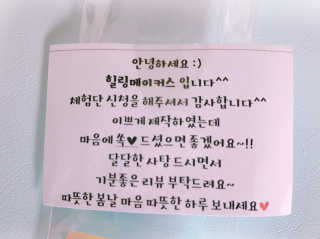 안녕하세요 :)
힐링메이커스 입니다^^
체험단 신청을 해주셔서 감사합니다^^
이쁘게 제작하였는데
마음에 쏙♥드셨으면 좋겠어요~!!
달달한 사탕 드시면서
기분좋은 리뷰 부탁드려요~
따뜻한 봄날 마음 따뜻한 하루 보내세요♥